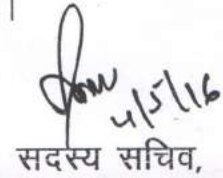 4/5/16
सदस्य सचिव,